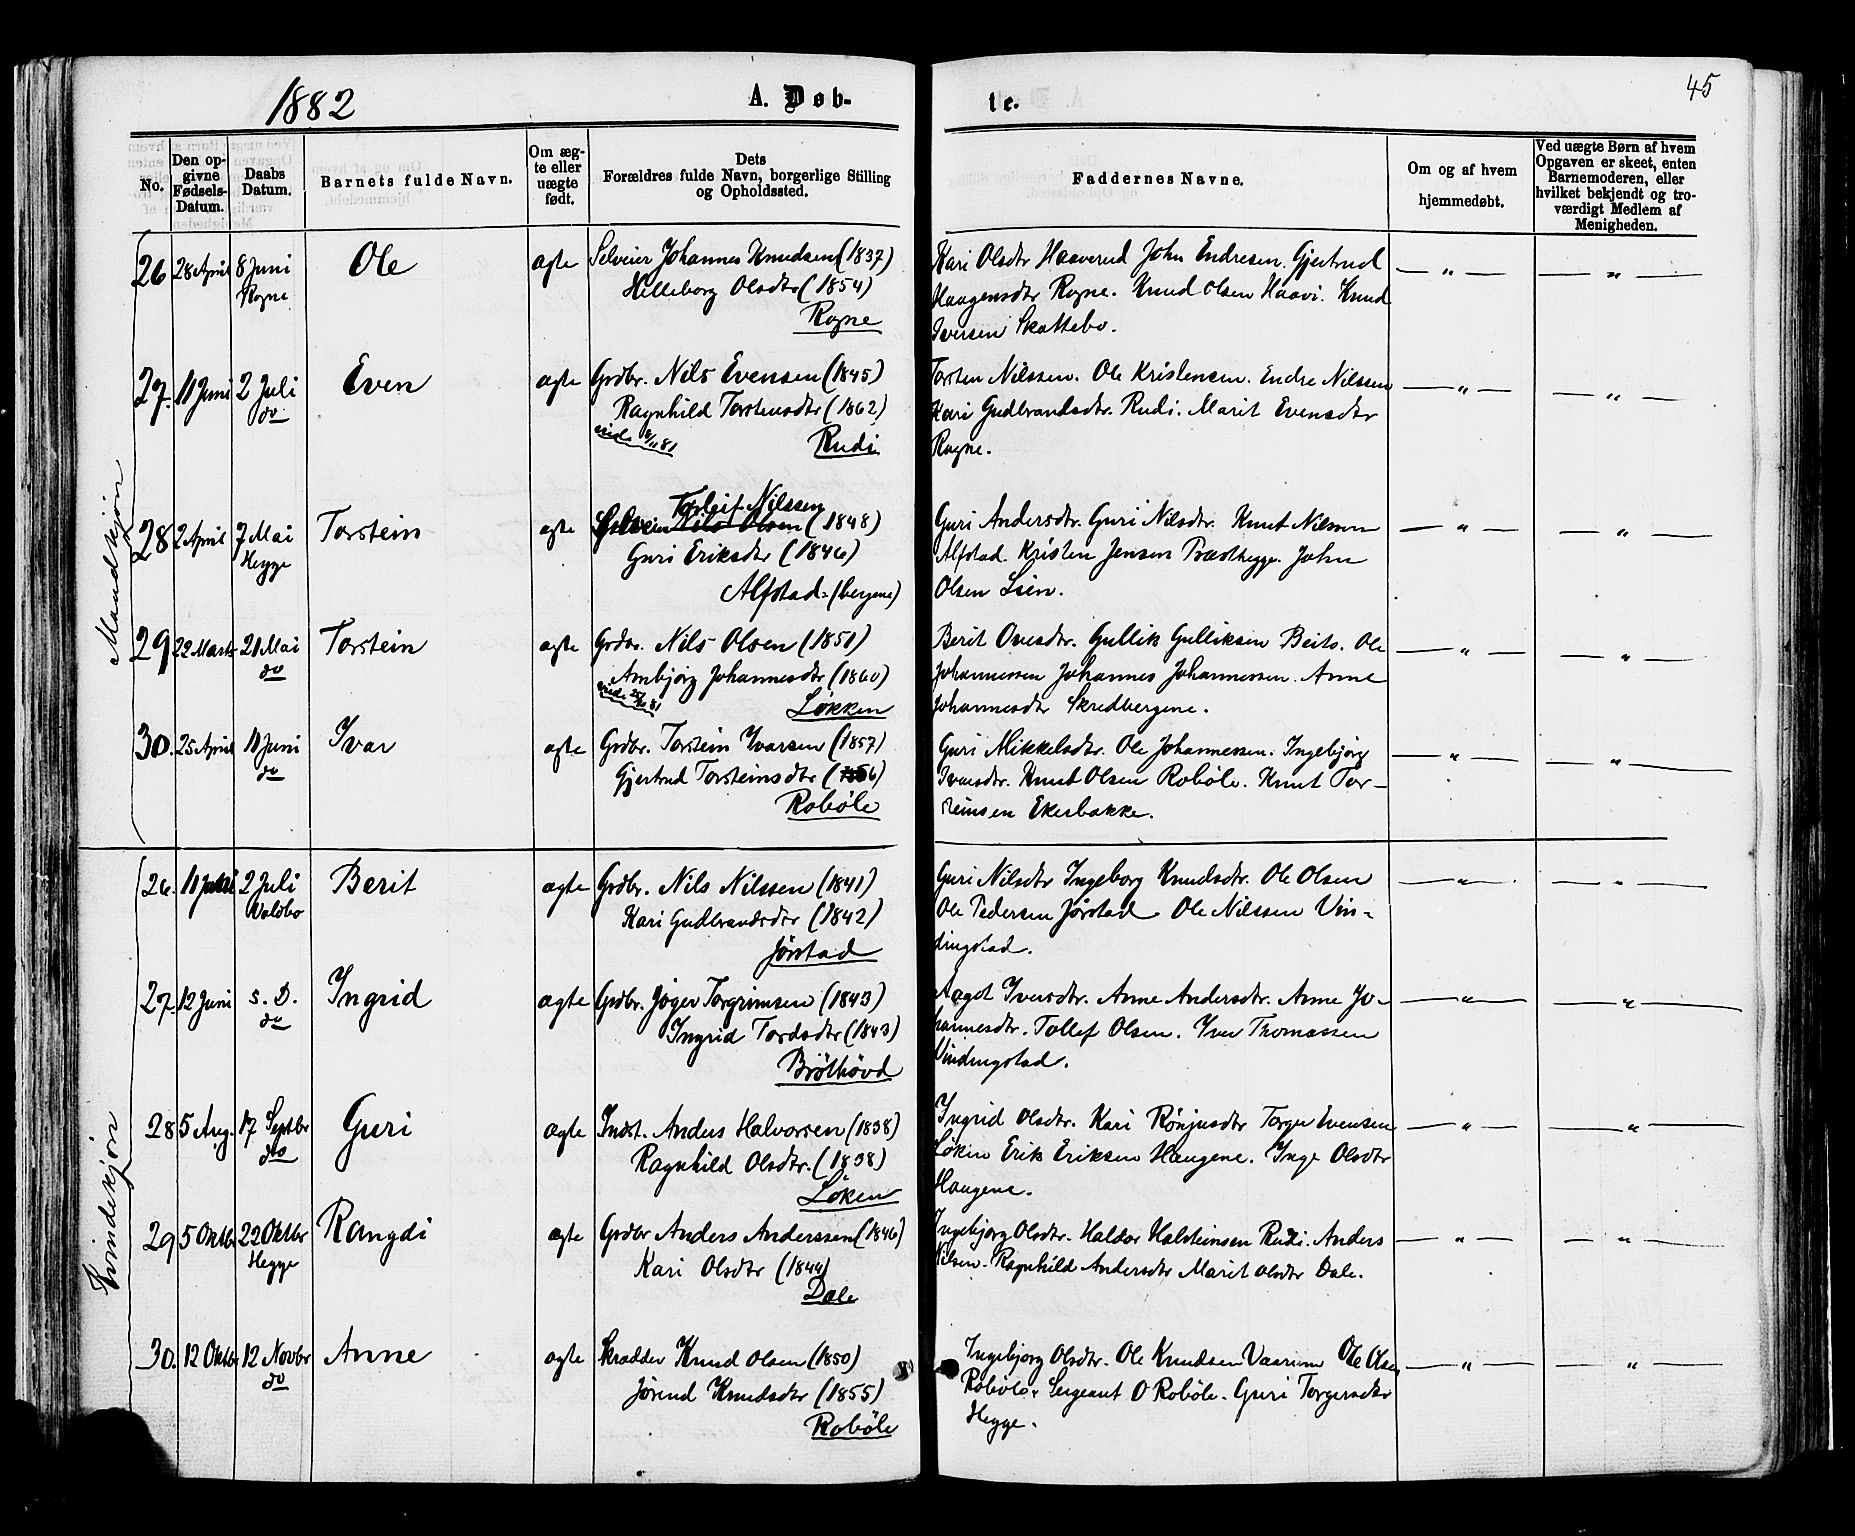 1882
A. Døb-
te.
45
No.
Den op-
givne
Fødsels-
Datum.
Daabs
Datum.
Barnets fulde Navn.
Om æg-
te eller
uægte
født.
Dets
Forældres fulde Navn, borgerlige Stilling
og Opholdssted.
Faddernes Navne.
Om og af hvem
hjemmedøbt.
Ved uægte Børn af hvem
Opgaven er skeet, enten
Barnemoderen, eller
hvilket bekjendt og tro-
værdigt Medlem af
Menigheden.
Mandkjøn
26 28 April 8 Juni Ole ægte Selveier Johannes Knudsen (1837) Kari Olsdtr Haaverud John Endresen. Gjertrud — " — — " —
Rogne Helleborg Olsdtr (1854) Haagensdtr Rogne. Knud Olsen Haavi. Knud
Rogne Iversen Skattebo.
27. 11 Juni 2 Juli Even ægte Grdbr. Nils Evensen (1845) Torsten Nilssen. Ole Kristensen. Endre Nilssen — " — — " —
do Ragnhild Torstensdtr (1862) Kari Gudbrandsdtr. Rudi. Marit Evensdtr
viede 4/11 81 Rudi Rogne.
Torleif Nilssen
28 2 April 7 Mai Torstein ægte Selveier Nils Olsen (1848) Guri Andersdtr. Guri Nilsdtr. Knut Nilssen — " — — " —
Hegge Guri Eriksdtr (1846) Alfstad. Kristen Jensen Præsthegge. John
Alfstad-(bergene) Olsen Lien.
29 22 Marts 21 Mai Torstein ægte Grdbr. Nils Olsen (1851) Berit Ovesdtr. Gullik Gulliksen Beito. Ole — " — — " —
do Arnbjørg Johannesdtr (1860) Johannessen Johannes Johannessen. Anne
viede 81 Løkken Johannesdtr Skredbergene.
30. 25 April 11 Juni Ivar ægte Grdbr. Torstein Ivarsen (1857) Guri Mikkelsdtr. Ole Johannessen. Ingebjørg — " — — " —
do Gjertrud Torsteinsdtr (1856) Iversdtr. Knut Olsen Robøle. Knut Tor-
Robøle steinsen Ekerbakke.
Kvindekjøn
26. 11 Juni 2 Juli Berit ægte Grdbr. Nils Nilssen (1841) Guri Nilsdtr Ingeborg Knudsdtr. Ole Olsen — " — — " —
Volbo Kari Gudbrandsdtr (1842) Ole Pedersen Jørstad Ole Nilssen Vin-
Jørstad dingstad.
27. 12 Juni s. D. Ingrid ægte Grdbr. Jøger Torgrimsen (1843) Aagot Iversdtr. Anne Andersdtr. Anne Jo- — " — — " —
do Ingrid Tordsdtr (1843) hannesdtr. Tollef Olsen. Iver Thomassen
Brøthovd Vindingstad.
28 5 Aug. 17 Septbr Guri ægte Indst. Anders Halvorsen (1838) Ingrid Olsdtr. Kari Rønjusdtr Torger Evensen — " — — " —
do Ragnhild Olsdtr. (1838) Løken Erik Eriksen Haugene. Inge Olsdtr
Løken Haugene.
29 5 Oktbr 22 Oktbr Rangdi ægte Grdbr Anders Anderssen (1846) Ingebjørg Olsdtr. Haldor Halsteinsen Rudi. Anders — " — — " —
Hegge Kari Olsdtr (1844) Nilsen. Ragnhild Andersdtr Marit Olsdtr Dale.
Dale
30. 12 Oktbr 12 Novbr Anne ægte Skrædder Knud Olsen (1850) Ingebjørg Olsdtr. Ole Knudsen Vaarum Ole Olsen — " — — " —
do Jørend Knudsdtr (1855) Robøle. Sergeant O Robøle. Guri Torgersdtr
Robøle Hegge.